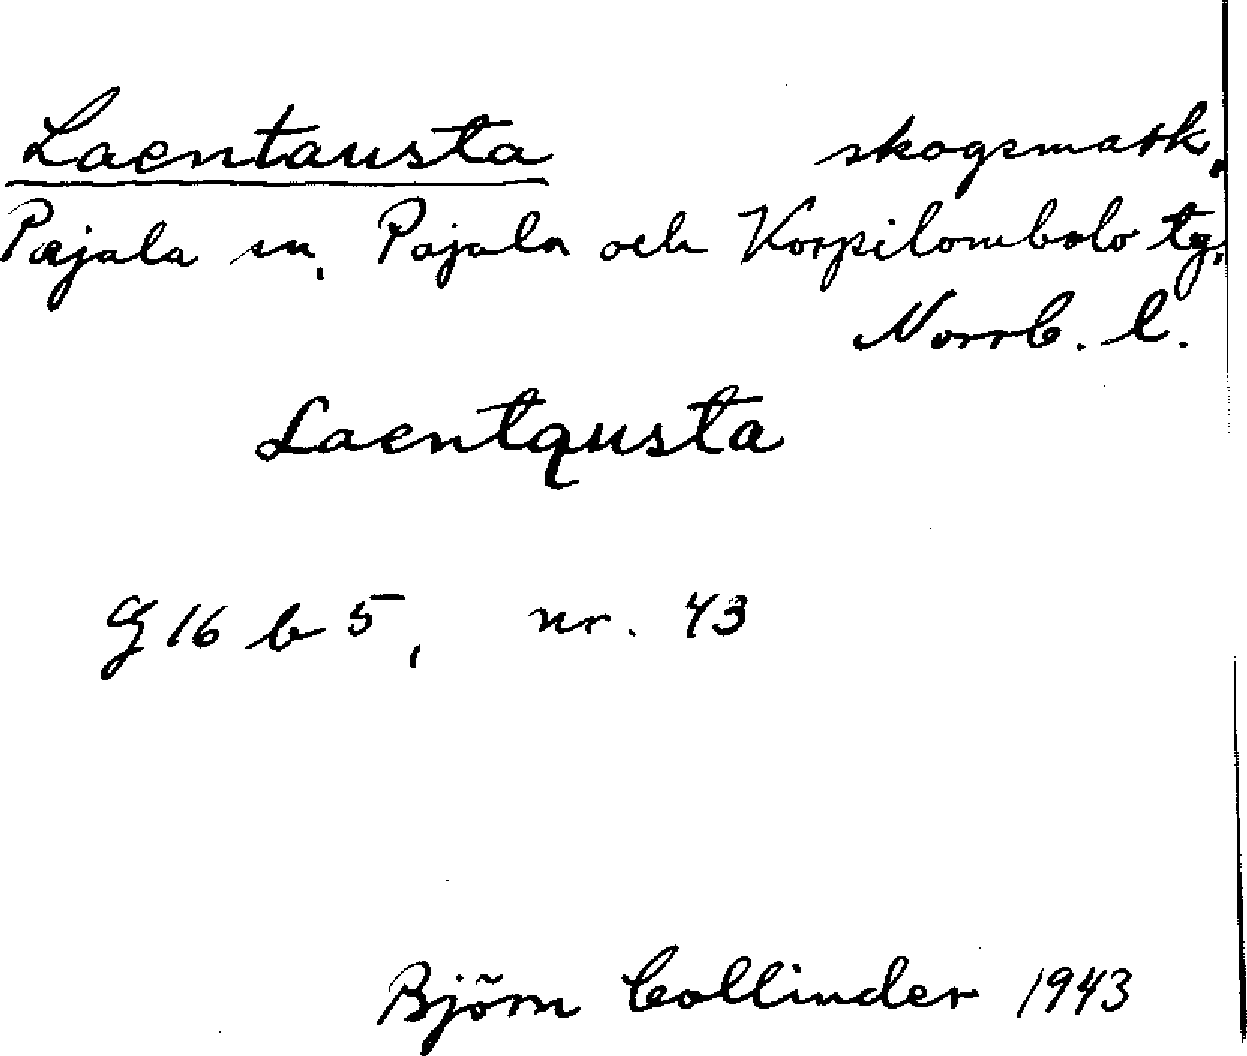 Laentausta skogsmark,
Pajala sn, Pajala och Korpilombolo tg,
Norrb. l.
Laentąusta
G 16 b 5, nr. 43
Björn Collinder 1943